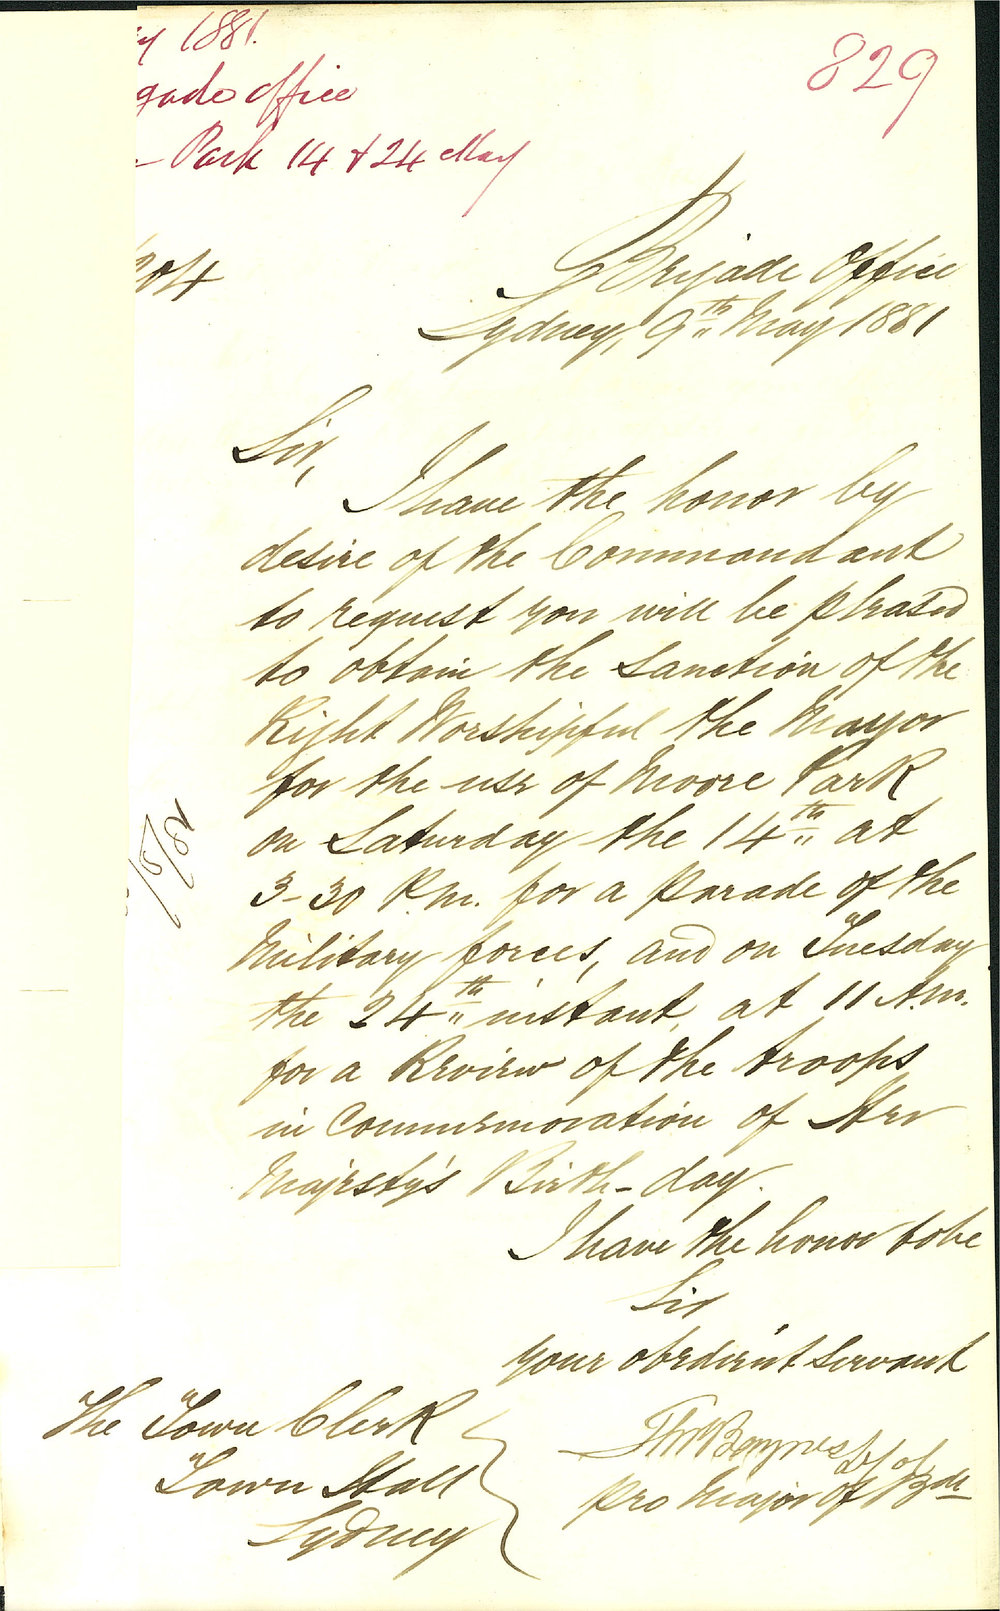 y 1881.
829
gade Office
Park 14 & 24 May
204
Brigade Office
Sydney, 9th May 1881
Sir,
I have the honor by
desire of the Commandant
to request you will be pleased
to obtain the sanction of the
Right Worshipful the Mayor
for the use of Moore Park
on Saturday the 14th at
3-30 P.m. for a Parade of the
Military forces, and on Tuesday
the 24th instant, at 11 A.m.
for a Review of the troops
in Commemoration of Her
Majesty's Birth-day.
I have the honor to be
Sir
your obedient servant
Baynes
pro Major of Bde
The Town Clerk
Town Hall
Sydney